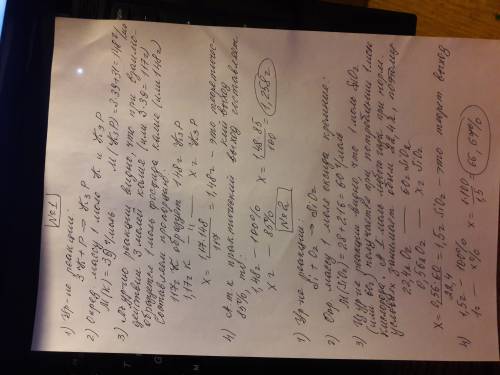 №1
1) Ур-ие реакции
3K + P → K3P
2) Опред. массу 1 моль K и K3P
M(K) = 39 г/моль M(K3P) = 3·39+31 = 148 г/
3) Из ур-ия реакции видно, что при взаимо-
действии 3 молей калия (или 3·39 = 117г)
образуется 1 моль фосфида калия (или 148г)
Составляем пропорцию:
117г K образуют 148г K3P
1,17г K —"— xг K3P
x = 1,17·148 / 117 = 1,48г - это теоретичес-
кий выход
4) А т.к практический выход составляет
85%, то:
1,48г - 100%
xг - 85%
x = 1,48·85 / 100 = 1,258г
№2
1) Ур-ие реакции:
Si + O2 → SiO2
2) Опр. массу 1 моль оксида кремния:
M(SiO2) = 28+2·16 = 60 г/моль
3) Из ур-ия реакции видно, что 1 моль SiO2
(или 60г) получается при потреблении 1 моль
кислорода. А 1 моль любого газа при норм.
условиях занимает объем 22,4л, поэтому
22,4л O2 — 60г SiO2
0,56л O2 — xг SiO2
x = 0,56·60 / 22,4 = 1,5г SiO2 - это теорет. выход
4) 1,5г - 100%
1г - x%
x = 1·100 / 1,5 = 66,67%